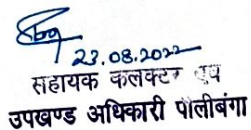 23.08.2022
सहायक कलक्टर एवं
उपखण्ड अधिकारी पीलीबंगा